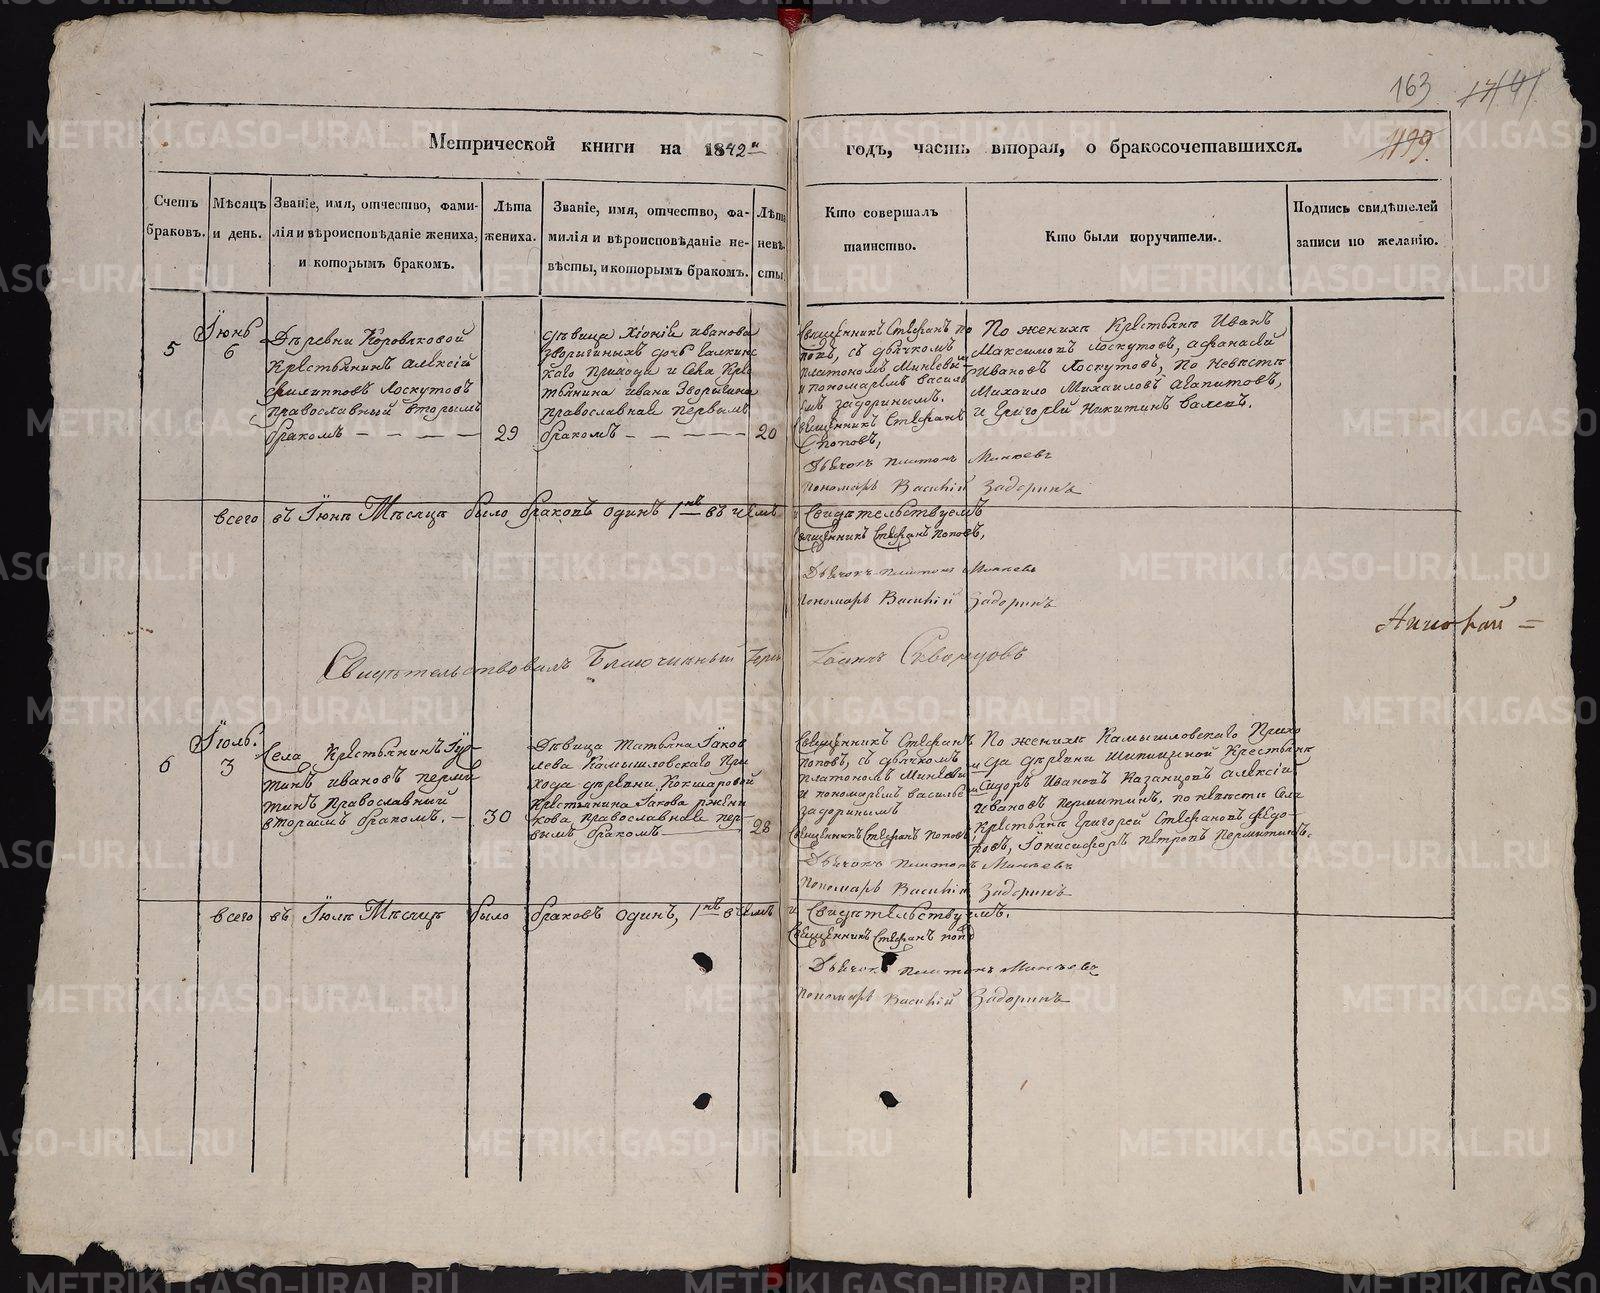 163
1199
Метрической книги на 1842й годъ, часть вторая, о бракосочетавшихся.
Счетъ браковъ.
Мѣсяцъ и день.
Званіе, имя, отчество, фами-
лія и вѣроисповѣданіе жениха,
и которымъ бракомъ.
Лѣта
жениха.
Званіе, имя, отчество, фа-
милія и вѣроисповѣданіе не-
вѣсты, и которымъ бракомъ.
Лѣта
невѣ-
сты.
Кто совершалъ
таинство.
Кто были поручители.
Подпись свидѣтелей
записи по желанію.
5
Іюнь
6
Деревни Коровяковой
крестьянинъ Алексій
Филипповъ Лоскутовъ
православный вторымъ
бракомъ
29
дѣвица Хіонія Иванова
Зворигиныхъ дочь Галкинс
каго прихода и села кре
стьянина Ивана Зворыгина
православная первымъ
бракомъ
20
священникъ Стефанъ по
повъ, съ дьячкомъ
платономъ Минѣевы
и пономаремъ василь
емъ задоринымъ.
священникъ Стефанъ
Поповъ,
Дьячокъ платонъ Минѣевъ
Пономарь Василій Задоринъ
По женихѣ Крестьянѣ Иванъ
Максимовъ Лоскутовъ, афанасій
Ивановъ Лоскутовъ, по невѣстѣ
Михаило Михаиловъ Агапитовъ,
и Григорей Никитинъ
всего въ Іюнѣ Мѣсяцѣ было браковъ одинъ 1нъ въ чемъ и свидѣтельствуемъ
священникъ Стефанъ поповъ,
Дьячокъ платонъ Минѣевъ
Пономарь Василій Задоринъ
Свидѣтельствовалъ Благочинный Іерей Іоаннъ Скворцовъ
6
Іюль.
3
Села крестьянинъ Іус-
тинъ ивановъ перми
тинъ православный
вторымъ бракомъ.
30
Дѣвица татьяна Іаков
лева Камышловскаго При
хода деревни Кокшаровой
крестьянина Іакова
православная пер-
вымъ бракомъ
28
священникъ Стефанъ
поповъ, съ дьячкомъ
платономъ Минѣевым
и пономаремъ василье
задоринымъ
священникъ Стефанъ поповъ,
Дьячокъ платонъ Минѣевъ
Пономарь Василій Задоринъ
По женихѣ Камышловскаго Прихо
да деревни Шипицкой крестьяне
Сидоръ Ивановъ Казанцовъ алексій
Ивановъ пермитинъ, по невѣстѣ села
крестьянѣ Григорей Стефановъ Федо-
ровъ, Іонисифоръ петровъ Пермитинъ.
всего въ Іюлѣ Мѣсяцѣ было браковъ одинъ, 1нъ въ чемъ и свидѣтельствуемъ.
священникъ Стефанъ поп
Дьячокъ платонъ Минѣевъ
Пономарь Василій Задоринъ
METRIKI.GASO-URAL.RU